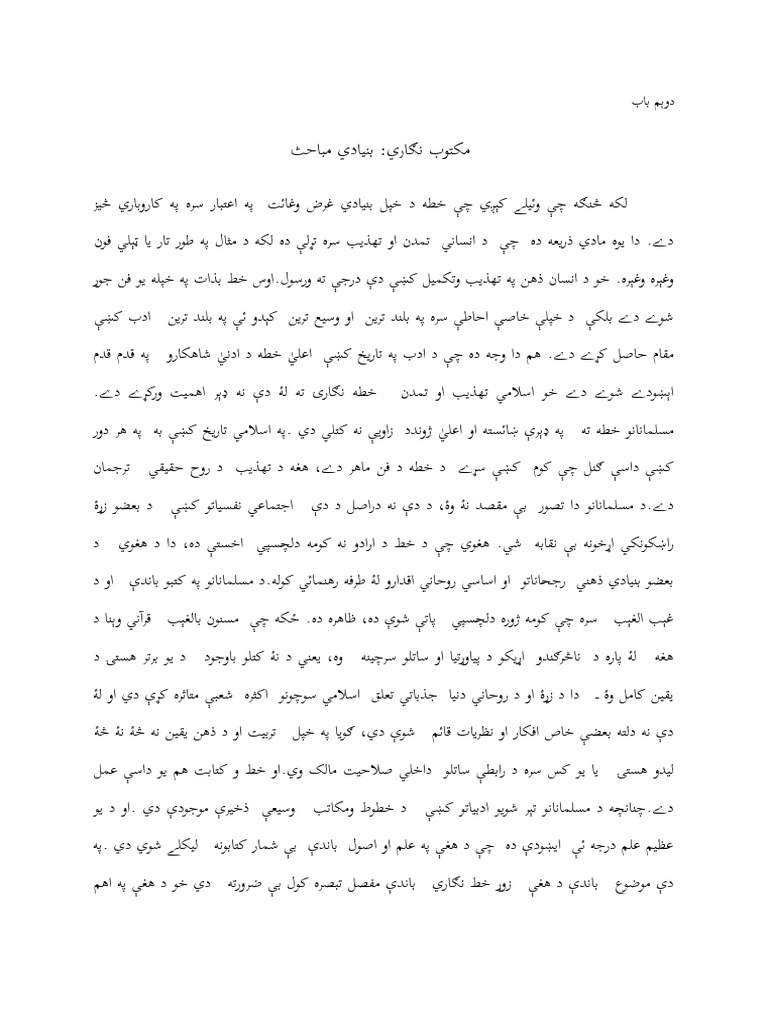 دوېم باب
مکتوب نګاري: بنيادي مباحث
لکه څنګه چې وئيلے کېږي چې خطه د خپل بنيادي غرض وغائت په اعتبار سره په کاروباري څيز
دے. دا يوه مادي ذريعه ده چې د انساني تمدن او تهذيب سره تړلې ده لکه د مثال په طور تار يا ټېلي فون
وغېره وغېره. خو د انسان ذهن په تهذيب وتکميل کښې دې درجې ته ورسول.اوس خط بذات په خپله يو فن جوړ
شوے دے بلکې د خپلې خاصې احاطې سره په بلند ترين او وسيع ترين کېدو ئې په بلند ترين ادب کښې
مقام حاصل کړے دے. هم دا وجه ده چې د ادب په تاريخ کښې اعلیٰ خطه د ادنیٰ شاهکارو په قدم قدم
اېښودے شوے دے خو اسلامي تهذيب او تمدن خطه نګاری ته لۀ دې نه ډېر اهميت ورکړے دے.
مسلمانانو خطه ته په ډېرې ښائسته او اعلیٰ ژوندد زاويې نه کتلي دي .په اسلامي تاريخ کښې به په هر دور
کښې داسې ګڼل چې کوم کښې سړے د خطه د فن ماهر دے، هغه د تهذيب د روح حقيقي ترجمان
دے.د مسلمانانو دا تصور بې مقصد نۀ وۀ، د دې نه دراصل د دې اجتماعي نفسياتو کښې د بعضو زړۀ
راښکونکي اړخونه بې نقابه شي. هغوي چې د خط د ارادو نه کومه دلچسپي اخستې ده، دا د هغوي د
بعضو بنيادي ذهني رجحاناتو او اساسي روحاني اقدارو لۀ طرفه رهنمائي کوله.د مسلمانانو په کتبو باندې او د
غېب الغېب سره چې کومه ژوره دلچسپي پاتې شوې ده، ظاهره ده. ځکه چې مسنون بالغېب قرآني وېنا د
هغه لۀ پاره د ناڅرګندو اړيکو د پياوړتيا او ساتلو سرچينه وه، يعني د نۀ کتلو باوجود د يو برتر هستی د
يقين کامل وۀ ـ دا د زړۀ او د روحاني دنيا جذباتي تعلق اسلامي سوچونو اکثره شعبې متاثره کړې دي او لۀ
دې نه دلته بعضې خاص افکار او نظريات قائم شوې دي، ګويا په خپل تربيت او د ذهن يقين نه څۀ نۀ څۀ
ليدو هستی يا يو کس سره د رابطې ساتلو داخلي صلاحيت مالک وي.او خط و کتابت هم يو داسې عمل
دے.چنانچه د مسلمانانو تېر شويو ادبياتو کښې د خطوط ومکاتب وسيعې ذخيرې موجودې دي .او د يو
عظيم علم درجه ئې اېښودې ده چې د هغې په علم او اصول باندې بې شمار کتابونه ليکلے شوي دي .په
دې موضوع باندې د هغې زوړ خط نګاري باندې مفصل تبصره کول بې ضرورته دي خو د هغې په اهم